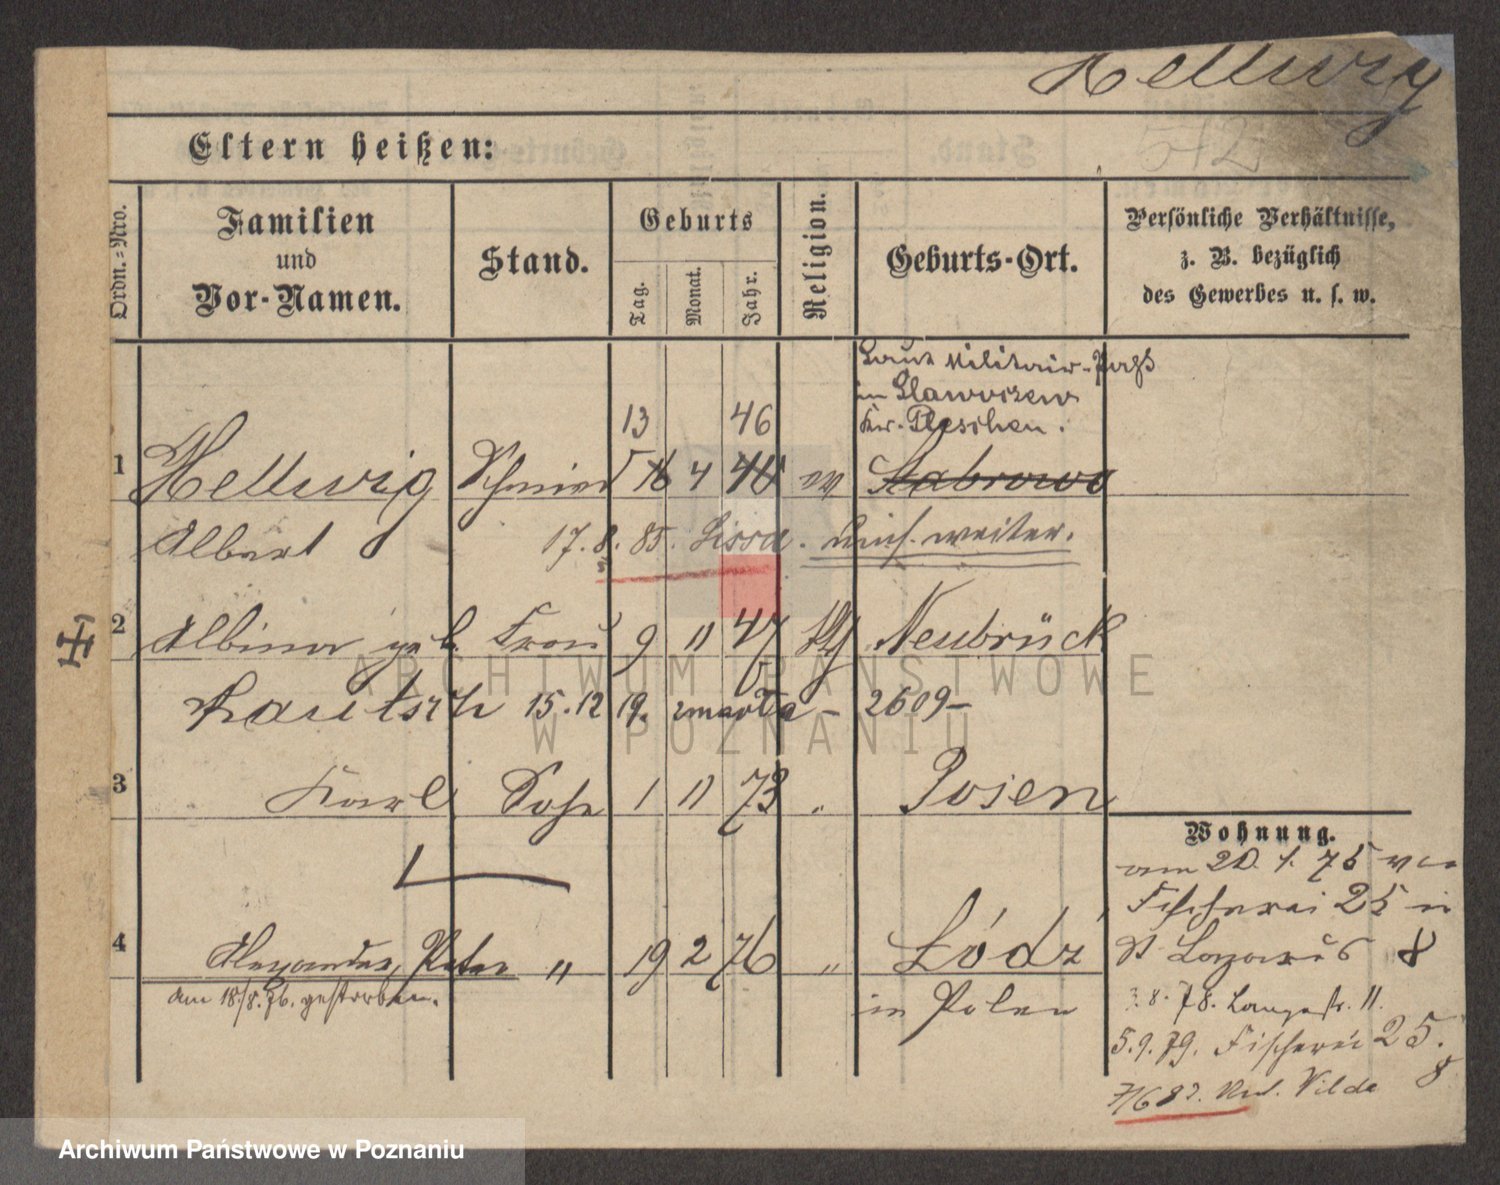 Hellwig
512
Eltern heißen:
Ordn.-Nro.
Familien
und
Vor-Namen.
Stand.
Geburts
Tag.
Monat.
Jahr.
Religion.
Geburts-Ort.
Persönliche Verhältnisse,
z. B. bezüglich
des Gewerbes u. s. w.
Laut Militair-Paß
in Slawoszew
Kr. Pleschen.
13 46
1 Hellwig Schmied 16 4 46 ev Stabrowo
Albert 17. 8. 85. Lissa. weiter.
2 Albina geb. Frau 9 11 47 Neubrück
Kautsch 15.12 19. zmarła - 2609-
3 Karl Sohn 1 11 73 " Posen
4 Alexander, Peter " 19 2 76 " Łódź
am 18/8. 76. gestorben. in Polen
Wohnung.
am 20. 1. 75 von
Fischerei 25 in
St Lazarus 8
3. 8. 78. Langestr. 11.
5. 9. 79. Fischerei 25.
8
7/6 82. Wilda
ARCHIWUM PAŃSTWOWE
W POZNANIU
Archiwum Państwowe w Poznaniu